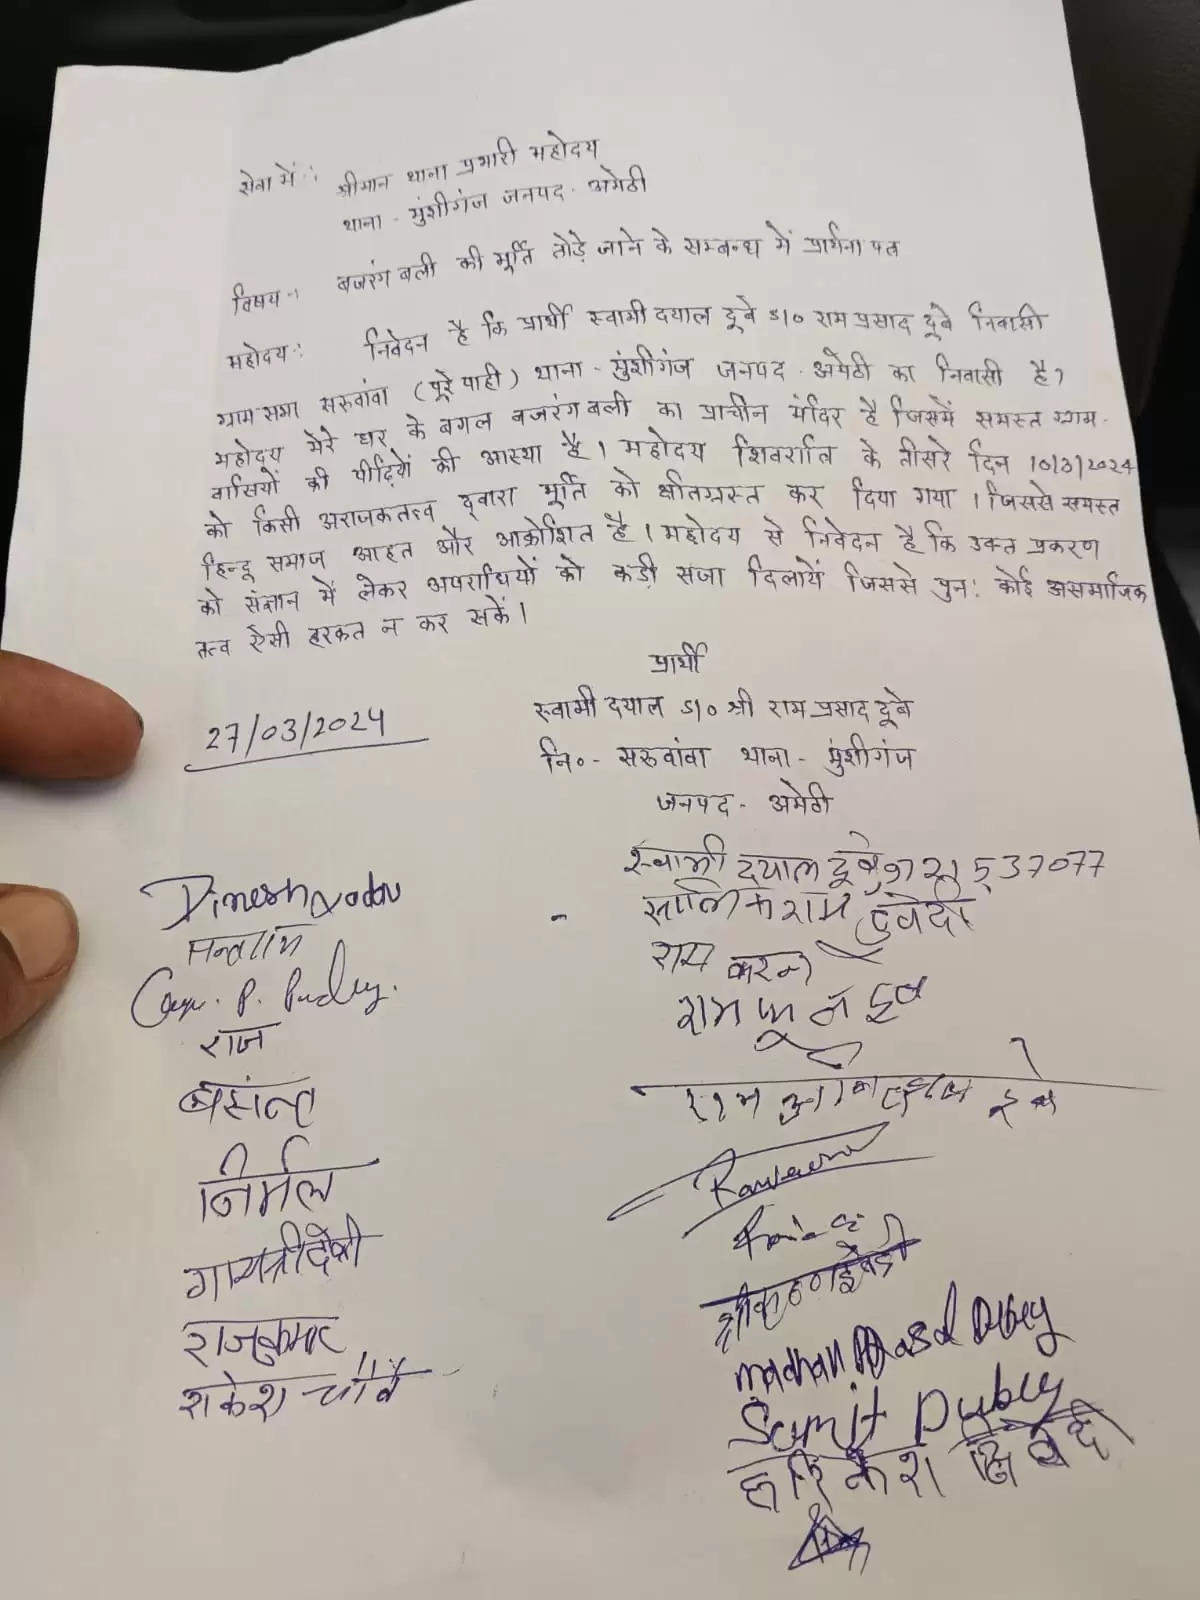 सेवा में :
श्रीमान थाना प्रभारी महोदय
थाना - मुंशीगंज जनपद - अमेठी
विषय :
बजरंग बली की मूर्ति तोड़े जाने के सम्बन्ध में प्रार्थना पत्र
महोदय : निवेदन है कि प्रार्थी स्वामी दयाल दूबे S/o राम प्रसाद दूबे निवासी
ग्राम सभा सरुवांवा (पूरे पाही) थाना - मुंशीगंज जनपद - अमेठी का निवासी है?
महोदय मेरे घर के बगल बजरंग बली का प्राचीन मंदिर है जिसमें समस्त ग्राम-
वासियों की पीढ़ियों की आस्था है। महोदय शिवरात्रि के तीसरे दिन 10/3/2024
को किसी अराजकतत्व द्वारा मूर्ति को क्षतिग्रस्त कर दिया गया। जिससे समस्त
हिन्दू समाज आहत और आक्रोशित है। महोदय से निवेदन है कि उक्त प्रकरण
को संज्ञान में लेकर अपराधियों को कड़ी सजा दिलायें जिससे पुनः कोई असमाजिक
तत्व ऐसी हरकत न कर सकें।
प्रार्थी
स्वामी दयाल S/o श्री राम प्रसाद दूबे
नि०- सरुवांवा थाना - मुंशीगंज
जनपद - अमेठी
27/03/2024
स्वामी दयाल दूबे
राम करन
Dinesh Yadav
राज
बसंत
निर्मल
गायत्री देवी
राजकुमार
राकेश
madhan Prasad Dubey
Sumit Dubey
हरिकेश द्विवेदी